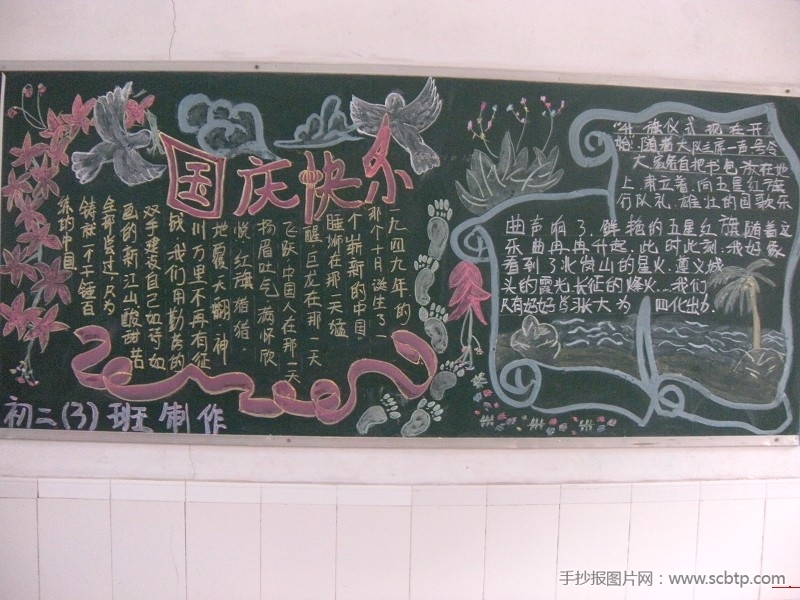 国庆快乐
一九四九年的
那个十月诞生了一
个崭新的中国
睡狮在那一天猛
醒 巨龙在那一天
飞跃 中国人在那一天
扬眉吐气 满怀欣
悦.红旗猎猎.
地覆天翻.神
州万里不再有征
战.我们用勤劳的
双手建设自己如诗如
画的新江山酸甜苦
全部尝过 只为
铸就一个千锤百
炼的中国
初二(3)班制作
"升旗仪式现在开
始.随着大队主席一声号令
大家各自把书包放在地
上.肃立着.向五星红旗
行队礼.雄壮的国歌乐
曲声响了.鲜艳的五星红旗随着
乐曲冉冉升起.此时此刻.我好像
看到了 山的星火.遵义城
头的霞光长征的烽火...我们
只有好好学 长大为 四化出力.
手抄报图片网：www.scbtp.com